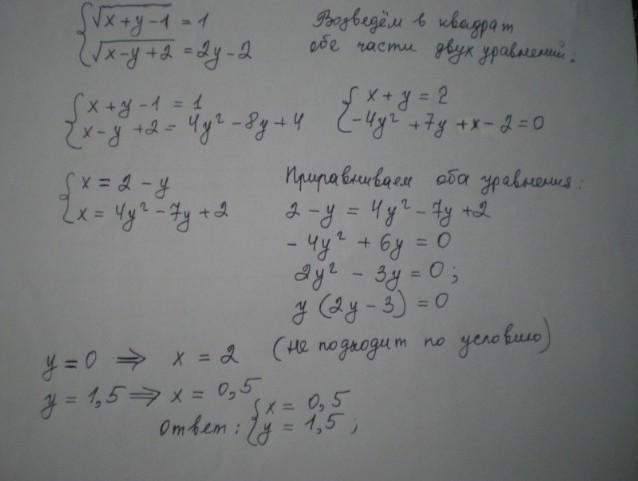 {√(x+y-1) = 1 Возведём в квадрат
{√(x-y+2) = 2y-2 обе части двух уравнений.
{x+y-1 = 1 {x+y=2
{x-y+2=4y²-8y+4 {-4y²+7y+x-2=0
{x=2-y Приравниваем оба уравнения:
{x=4y²-7y+2 2-y=4y²-7y+2
-4y²+6y=0
2y²-3y=0;
y(2y-3)=0
y=0 ⇒ x=2 (не подходит по условию)
y=1,5 ⇒ x=0,5
Ответ: {x=0,5
{y=1,5;